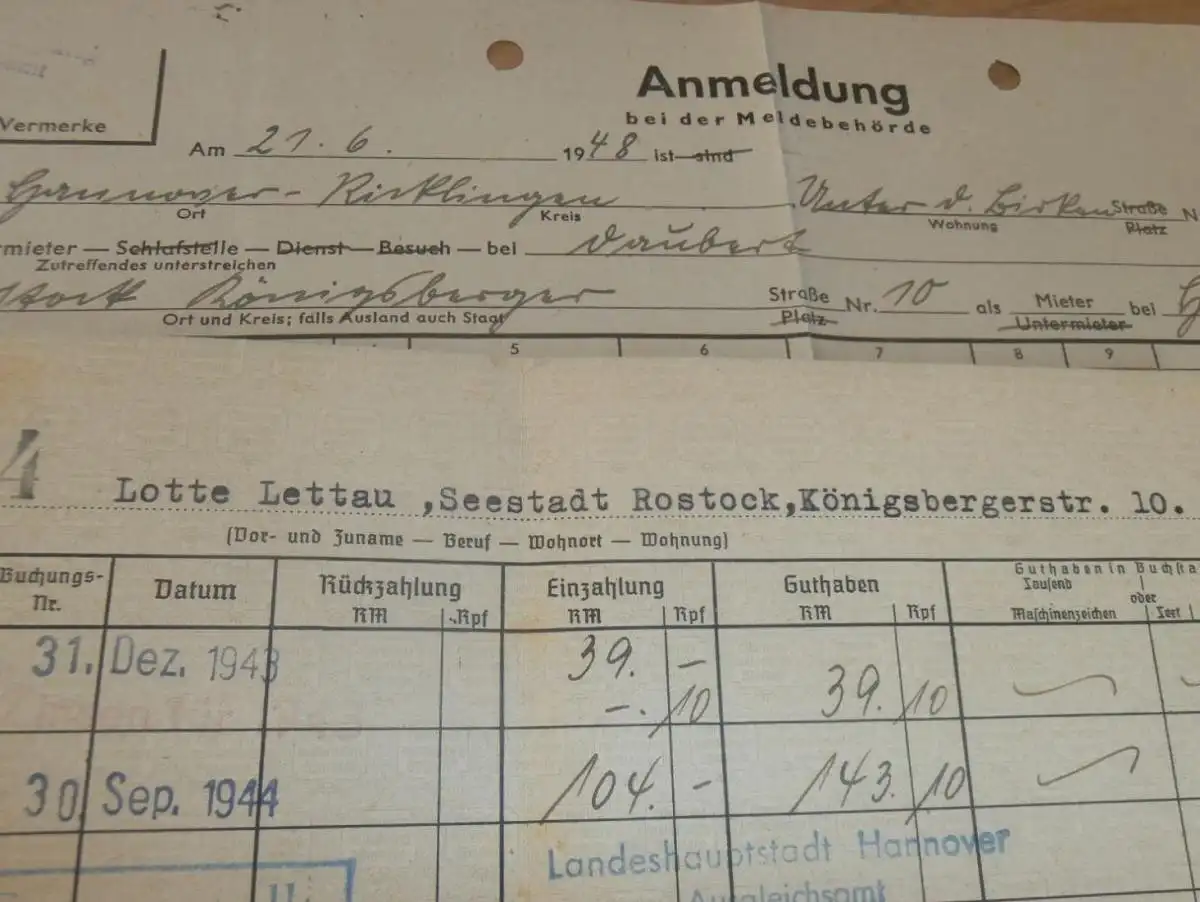 Anmeldung
bei der Meldebehörde
Vermerke
Am 21. 6. 1948 ist sind
Hannover - Ricklingen Unter d. Birken Straße Platz N
Ort Kreis Wohnung
mieter — Schlafstelle — Dienst — Besuch — bei Daubert
Zutreffendes unterstreichen
stock Königsberger Straße Platz Nr. 10 als Mieter Untermieter bei
Ort und Kreis; falls Ausland auch Staat
5 6 7 8 9
4
Lotte Lettau ,Seestadt Rostock,Königsbergerstr. 10.
(Vor- und Zuname — Beruf — Wohnort — Wohnung)
Buchungs-Nr. Datum Rückzahlung Einzahlung Guthaben Guthaben in Buchsta
Tausend oder
RM Rpf RM Rpf RM Rpf Maschinenzeichen
31. Dez. 1943 39. – 
–. 10 39. 10
30. Sep. 1944 104. – 143. 10
Landeshauptstadt Hannover
Ausgleichsamt